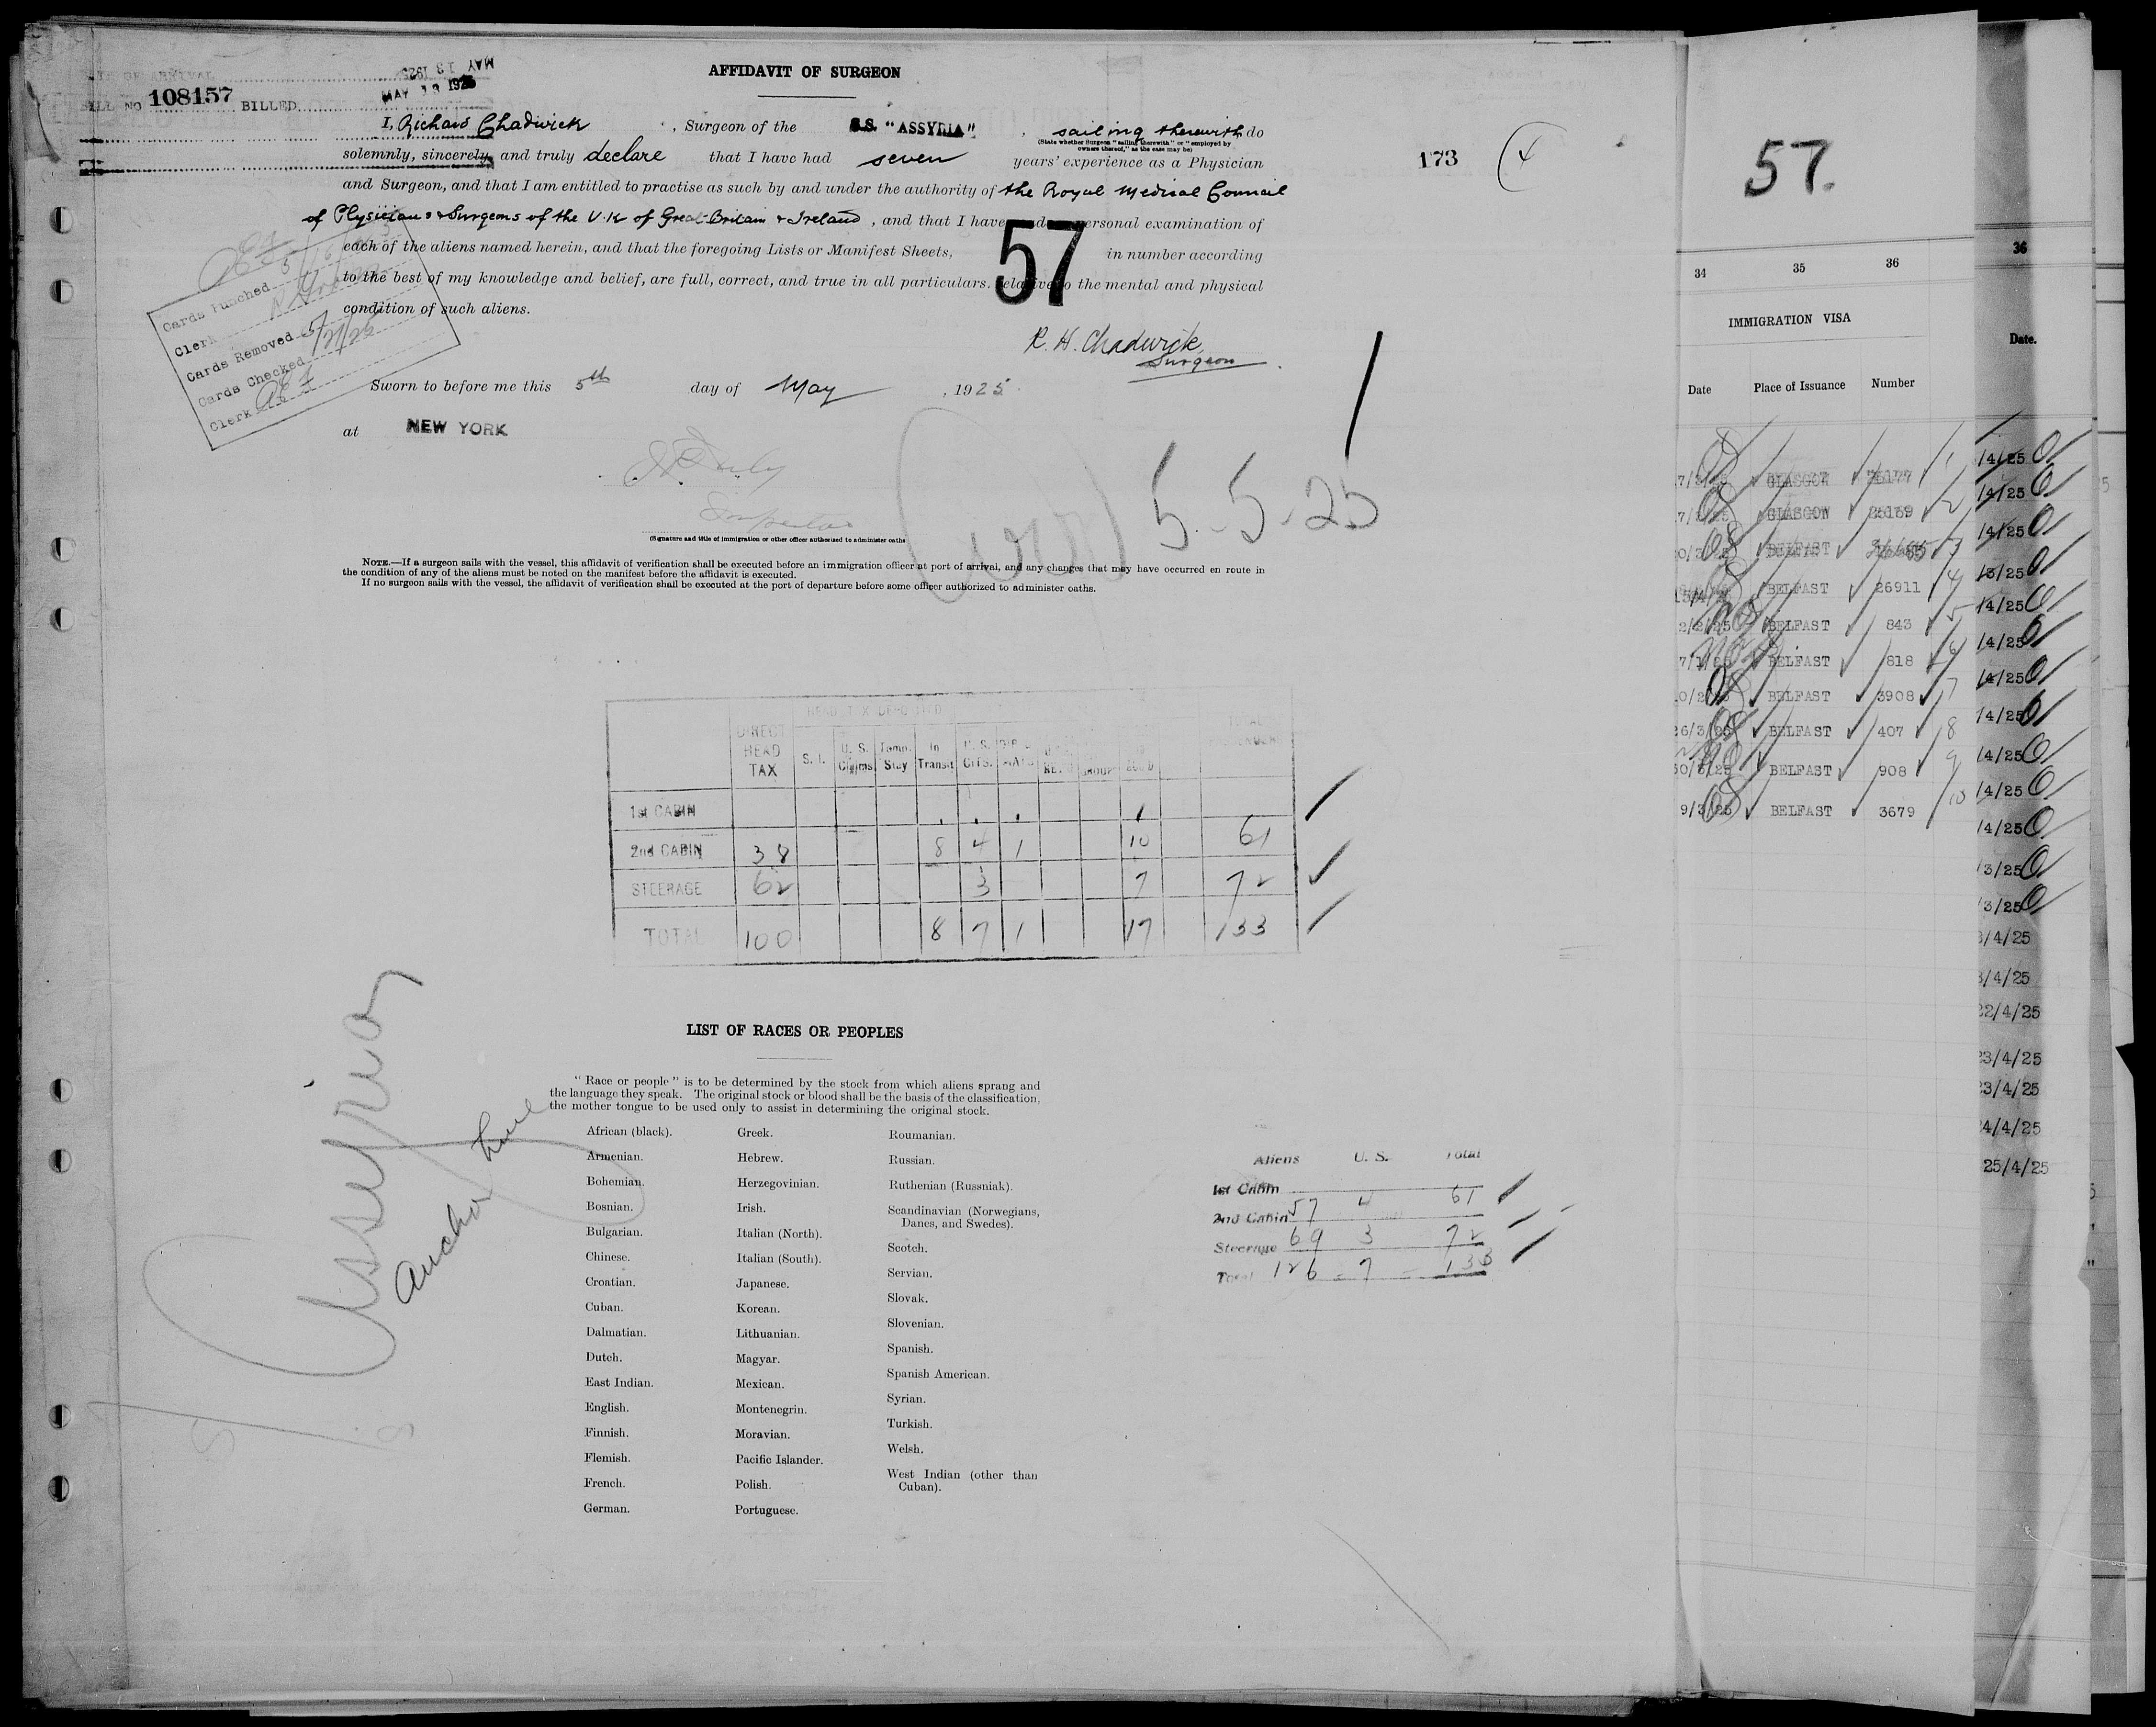 DATE OF ARRIVAL MAY 13 1925
BILL NO 108157 BILLED MAY 19 1925
AFFIDAVIT OF SURGEON
I, Richard Chadwick , Surgeon of the S.S. "ASSYRIA" , sailing therewith do
(State whether Surgeon "sailing therewith" or "employed by
owners thereof," as the case may be)
solemnly, sincerely, and truly declare that I have had seven years' experience as a Physician
173
and Surgeon, and that I am entitled to practise as such by and under the authority of the Royal Medical Council
of Physicians & Surgeons of the U.K of Great Britain & Ireland , and that I have personal examination of
each of the aliens named herein, and that the foregoing Lists or Manifest Sheets, 57 in number according
to the best of my knowledge and belief, are full, correct, and true in all particulars. relative to the mental and physical
condition of such aliens.
Cards Punched
Clerk
Cards Removed
Cards Checked
Clerk
R. H. Chadwick,
Surgeon
Sworn to before me this 5th day of May , 1925.
at NEW YORK
5-5-25
Inspector
(Signature and title of immigration or other officer authorized to administer oaths
NOTE.—If a surgeon sails with the vessel, this affidavit of verification shall be executed before an immigration officer at port of arrival, and any changes that may have occurred en route in
the condition of any of the aliens must be noted on the manifest before the affidavit is executed.
If no surgeon sails with the vessel, the affidavit of verification shall be executed at the port of departure before some officer authorized to administer oaths.
DIRECT HEAD TAX
HEAD TAX DEPOSITED
S. I. U. S. Clms. Temp. Stay In Transit U. S. Cits.
1st CABIN
2nd CABIN 38 8 4 1 10 61
STEERAGE 62 3 7 72
TOTAL 100 8 7 1 17 133
Assyria
Anchor Line
LIST OF RACES OR PEOPLES
"Race or people" is to be determined by the stock from which aliens sprang and
the language they speak. The original stock or blood shall be the basis of the classification,
the mother tongue to be used only to assist in determining the original stock.
African (black).
Armenian.
Bohemian.
Bosnian.
Bulgarian.
Chinese.
Croatian.
Cuban.
Dalmatian.
Dutch.
East Indian.
English.
Finnish.
Flemish.
French.
German.
Greek.
Hebrew.
Herzegovinian.
Irish.
Italian (North).
Italian (South).
Japanese.
Korean.
Lithuanian.
Magyar.
Mexican.
Montenegrin.
Moravian.
Pacific Islander.
Polish.
Portuguese.
Roumanian.
Russian.
Ruthenian (Russniak).
Scandinavian (Norwegians,
Danes, and Swedes).
Scotch.
Servian.
Slovak.
Slovenian.
Spanish.
Spanish American.
Syrian.
Turkish.
Welsh.
West Indian (other than
Cuban).
Aliens U. S. Total
1st Cabin
2nd Cabin 57 4 61
Steerage 69 3 72
Total 126 - 7 - 133
57.
34 35 36
IMMIGRATION VISA
Date Place of Issuance Number
GLASGOW 1
GLASGOW 2
BELFAST 3
BELFAST 26911 4
BELFAST 843 5
BELFAST 818 6
BELFAST 3908 7
26/3/25 BELFAST 407 8
BELFAST 908 9
9/3/25 BELFAST 3679 10
36
Date.
/4/25
/4/25
/4/25
/3/25
/4/25
/4/25
/4/25
/4/25
/4/25
/4/25
/4/25
/3/25
/3/25
3/4/25
3/4/25
22/4/25
23/4/25
23/4/25
24/4/25
25/4/25